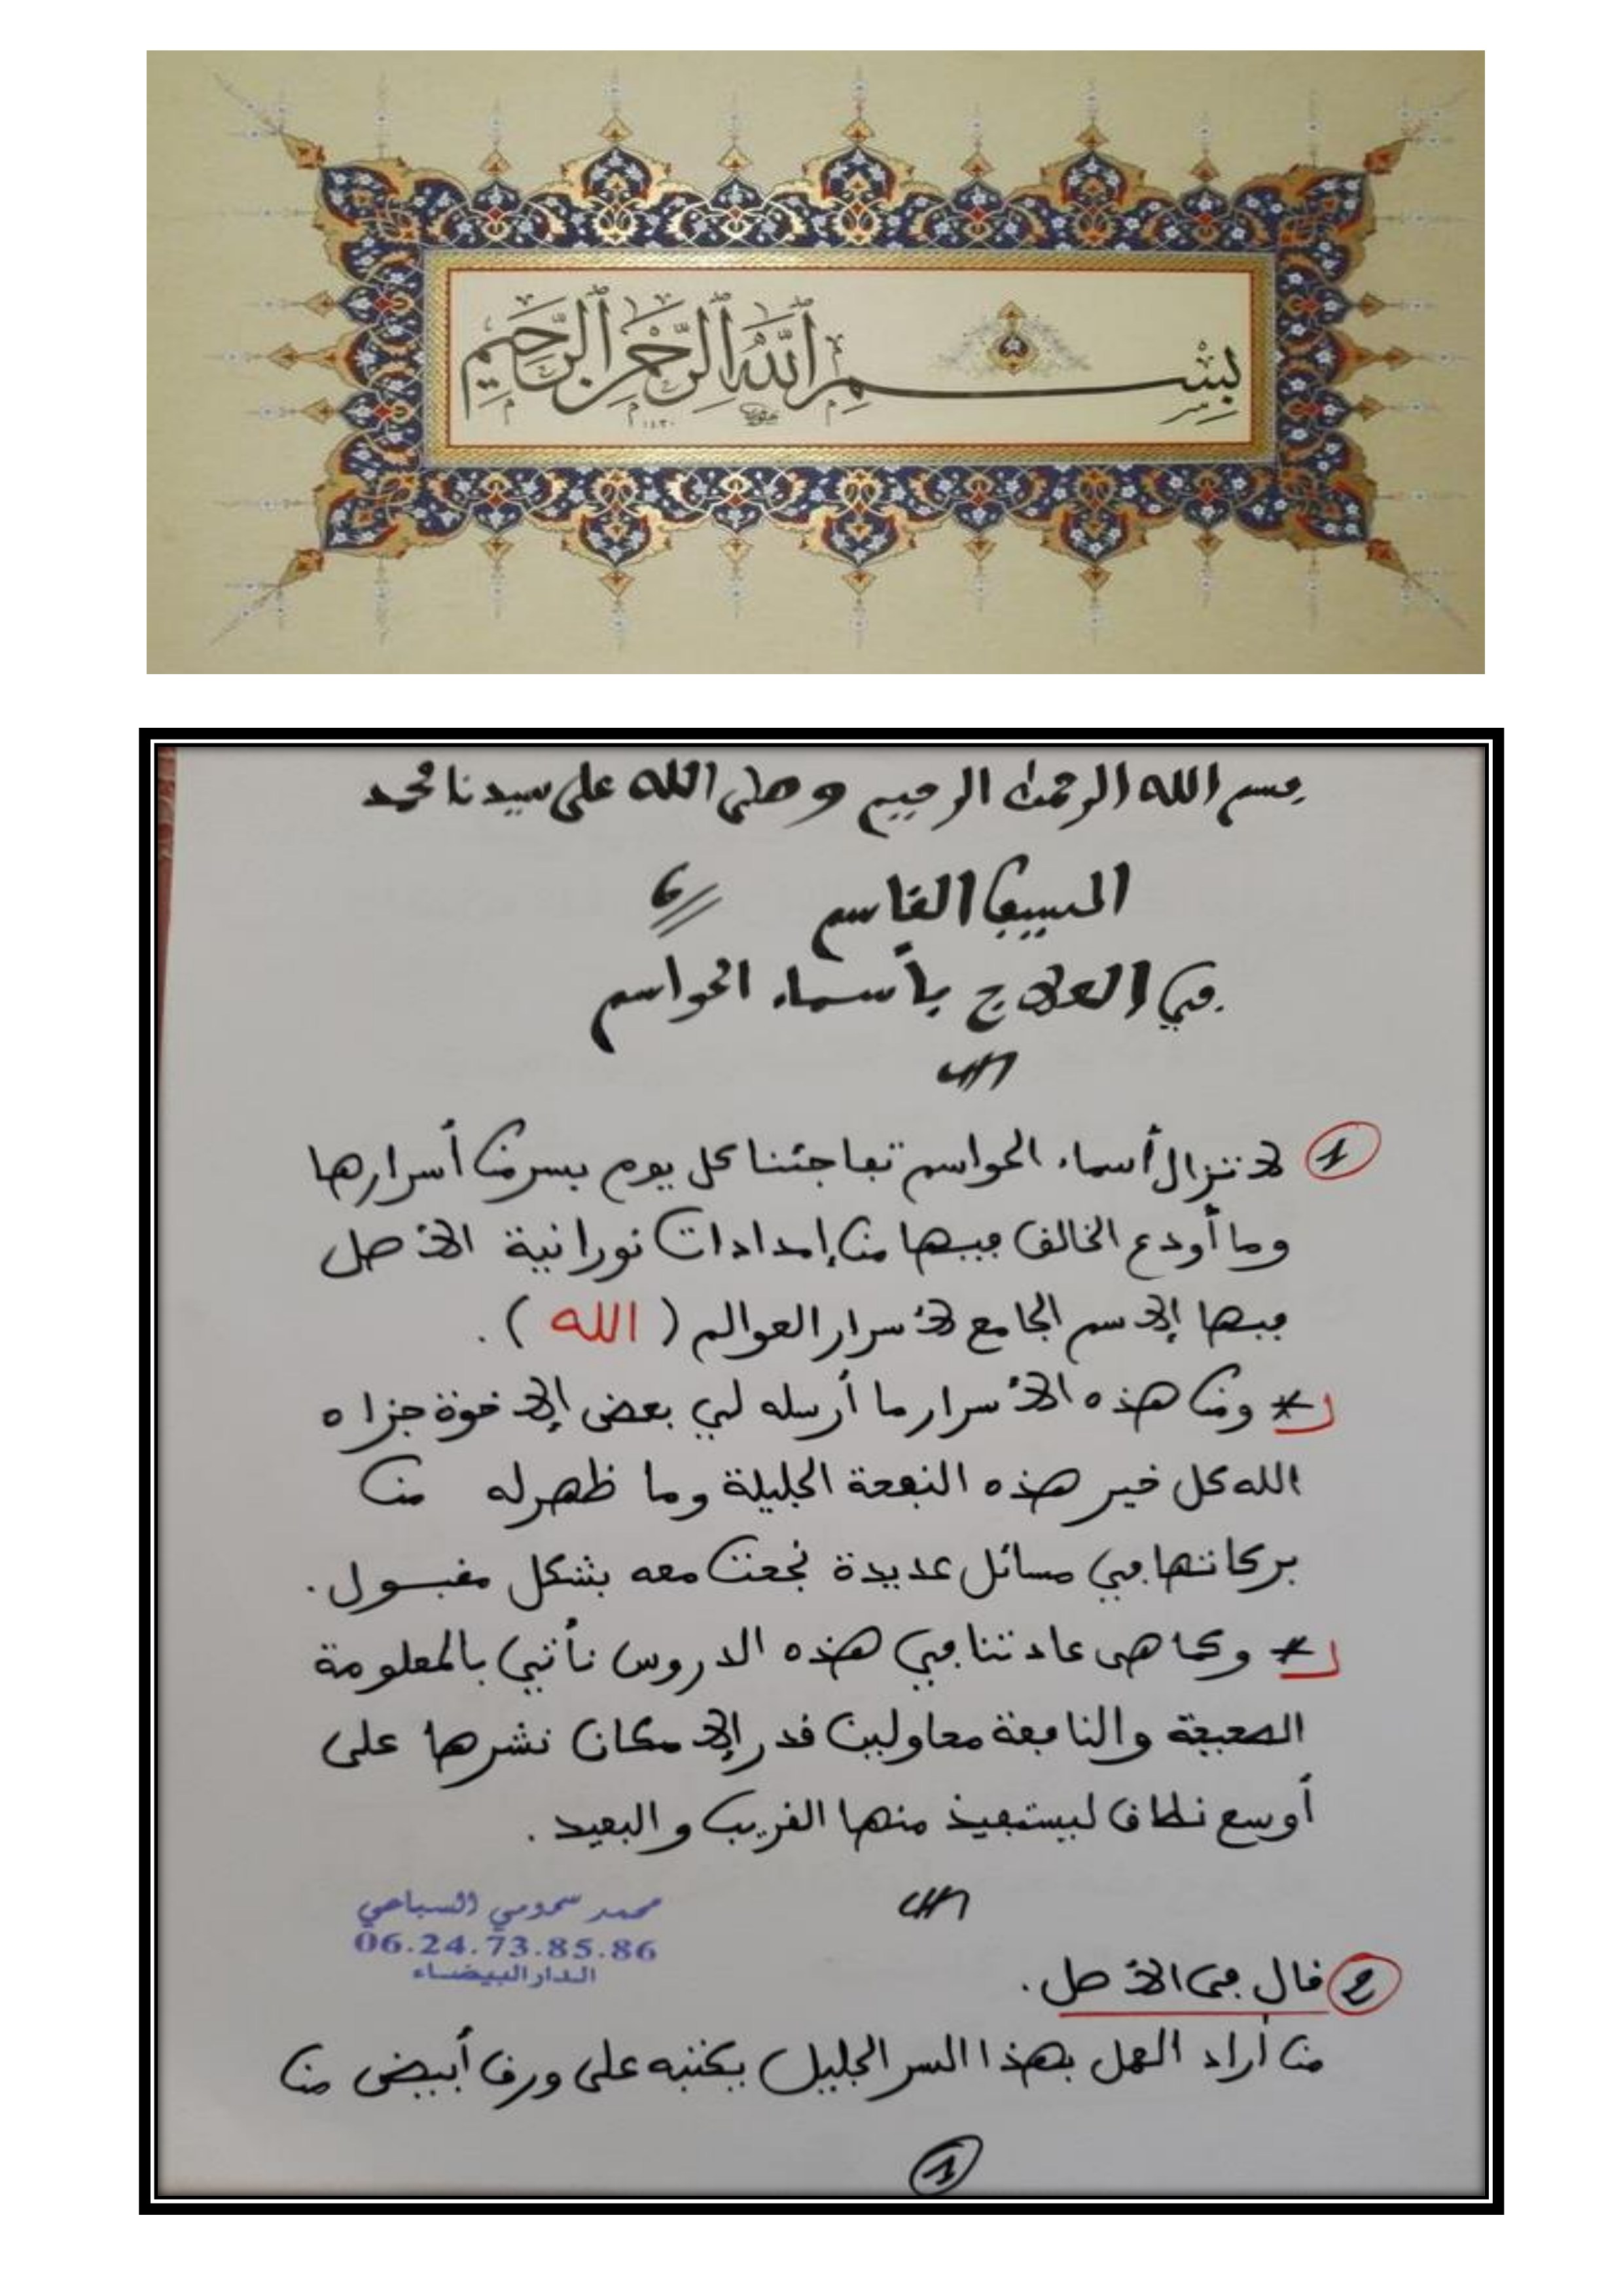 بِسْمِ اللَّهِ الرَّحْمَٰنِ الرَّحِيمِ
١٤٣٠
بسم الله الرحمن الرحيم وصلى الله على سيدنا محمد
السيف القاسم
في العلاج بأسماء الحواسم
1 لا تزال أسماء الحواسم تفاجئنا كل يوم بسر من أسرارها
وما أودع الخالق فيها من إمدادات نورانية الأصل
فيها الإسم الجامع لأسرار العوالم ( الله ) .
* ومن هذه الأسرار ما أرسله لي بعض الإخوة جزاه
الله كل خير هذه النفحة الجليلة وما ظهر له من
بركاتها في مسائل عديدة نجحت معه بشكل مقبول .
* وكما هي عادتنا في هذه الدروس نأتي بالمعلومة
الصحيحة والنافعة محاولين قدر الإمكان نشرها على
أوسع نطاق ليستفيد منها القريب والبعيد .
محمد سمومي السباعي
06.24.73.85.86
الدار البيضاء
2 قال في الأصل .
من أراد العمل بهذا السر الجليل يكتبه على ورق أبيض من
1